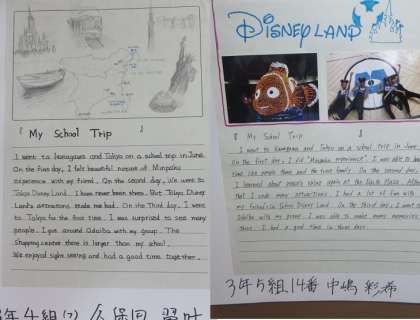 『 My School Trip 』
I went to Kanagawa and Tokyo on a school trip in June.
On the first day, I felt beautiful nature of Minpaku
experience with my friend. On the second day, We went to
Tokyo Disney Land. I have never been there. But Tokyo Disney
Land's attractions made me bad. On the Third day, I went
to Tokyo for the first time. I was surprised to see many
people. I got around Odaiba with my group. The
Shopping center there is larger than my school.
We enjoyed sight seeing and had a good time together.
年4組
DISNEY LAND
『 My School Trip 』
I went to Kanagawa and Tokyo on a school trip in June.
On the first day, I did "Minpaku experience". I was able to
time
people there and the first family. On the second day,
I learned about
that I rode many attractions. I had a lot of fun with
my friends in Tokyo Disney Land. On the third day, I went to
Odaiba with my group. I was able to make many memories
there. I had a good time in three days.
3年5組14番 中嶋 彩希